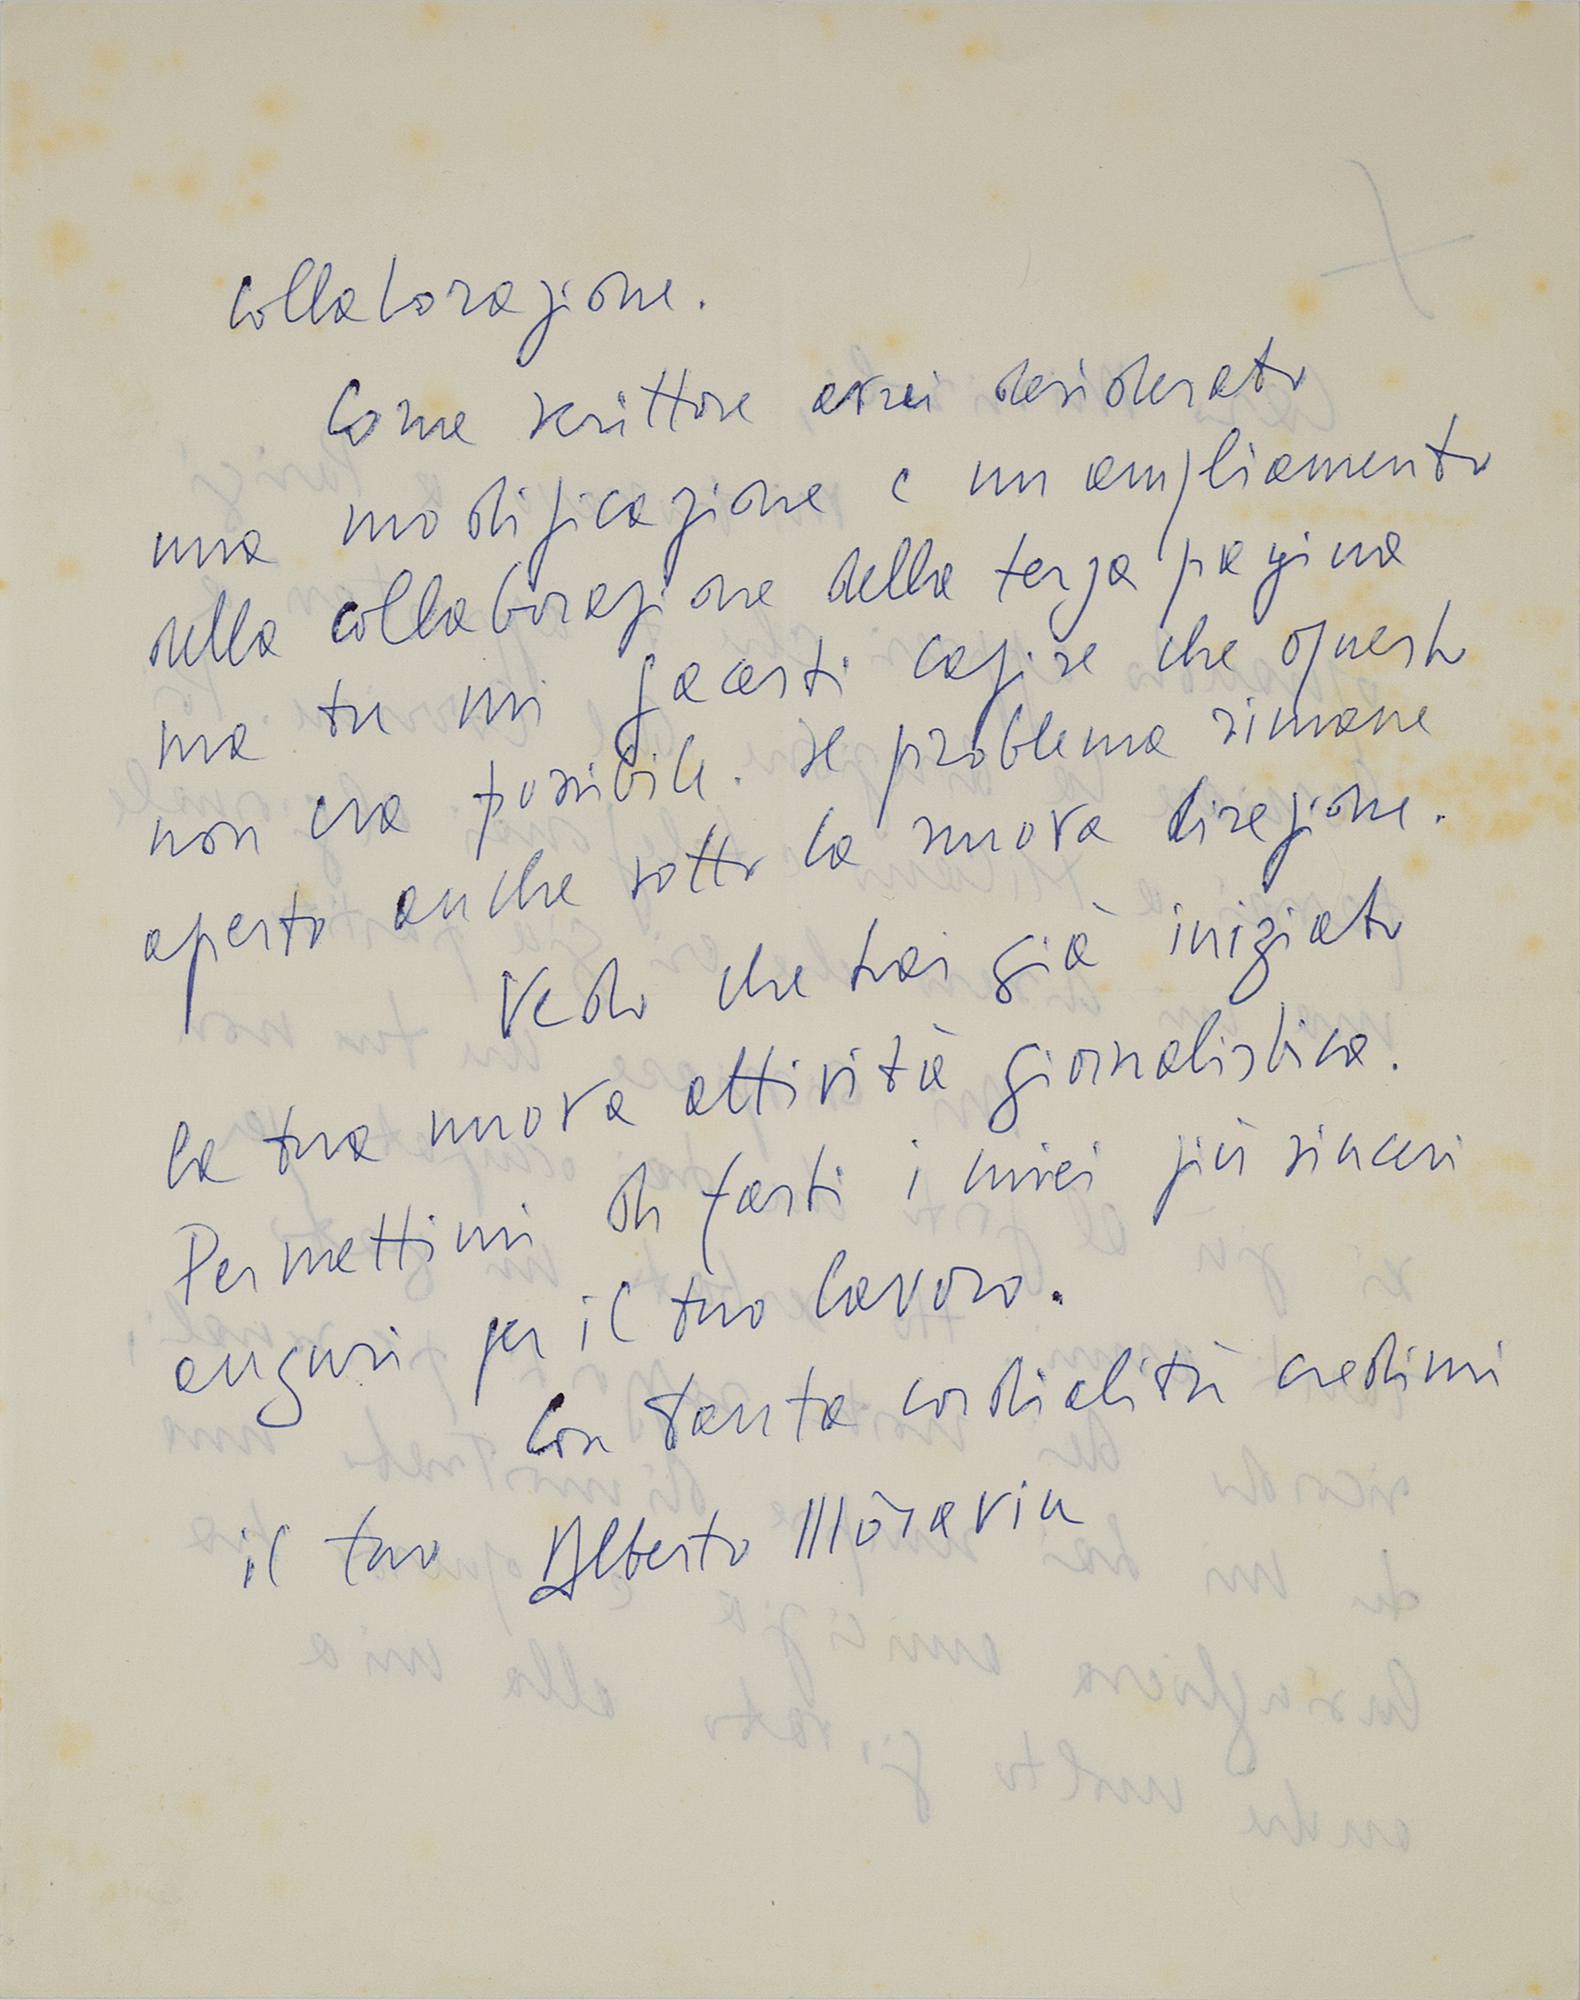 collaborazione.
Come scrittore avrei desiderato
una modificazione e un ampliamento
della collaborazione della terza pagina
ma tu mi facesti capire che questo
non era possibile. Il problema rimane
aperto anche sotto la nuova direzione.
Vedo che hai già iniziato
la tua nuova attività giornalistica.
Permettimi di farti i miei più sinceri
auguri per il tuo lavoro.
Con tanta cordialità credimi
il tuo Alberto Moravia